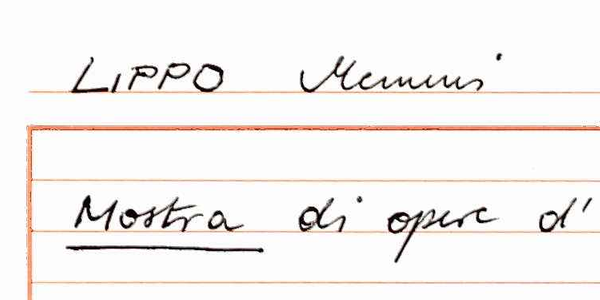 LIPPO Memmi
Mostra di opere d'